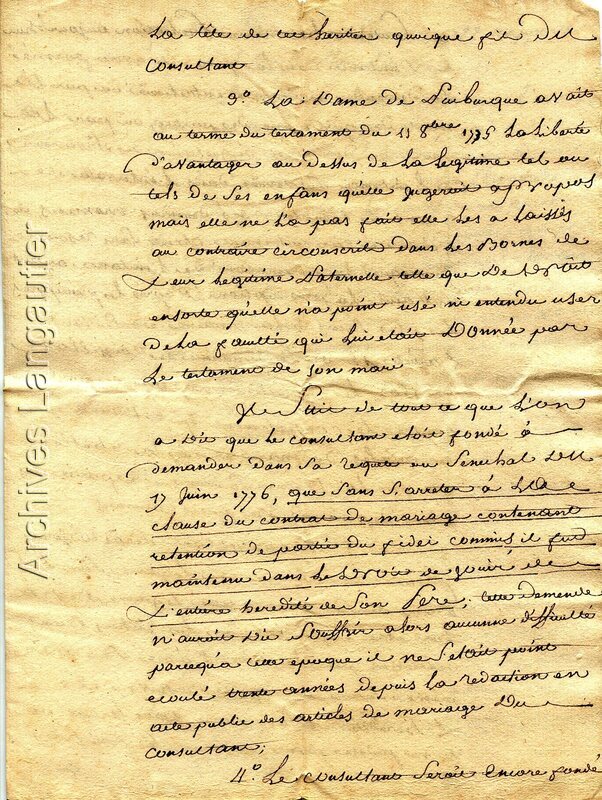 La tête de cet heritier quoique fit dit
Consultant
3.° La Dame de Puiburque avait
au terme du testament du 11 8bre 1735 La Liberté
d'avantager au dessus de La Legitime tel ou
tels de Ses enfans qu'elle Jugeroit apropos
mais elle ne L'a pas fait elle Les a Laissés
au contraire circonscrits dans Les Bornes de
Leur Legitime Paternelle telle que De Droit
ensorte qu'elle n'a point usé ni entendu user
de La faculté qui Lui etoit Donnée par
Le testament de son mari
Il Suit de tout ce que L'on
a Dit que Le consultant etoit fondé à
demander dans Sa requete au Senechal du
17 Juin 1776, que Sans S'arreter à La
clause du contrat de mariage contenant
retention de partie du fidei commis il fut
maintenu dans Le Droit de Jouir de
L'entiere heredité de Son Pere; cette demande
n'auroit Dû Souffrir alors aucunne difficulté
parcequ'a cette epoque il ne S'etoit point
ecoulé trente années depuis La redaction en
acte public des articles de mariage Du
Consultant;
4.° Le Consultant Seroit Encore fondé
Archives Langautier